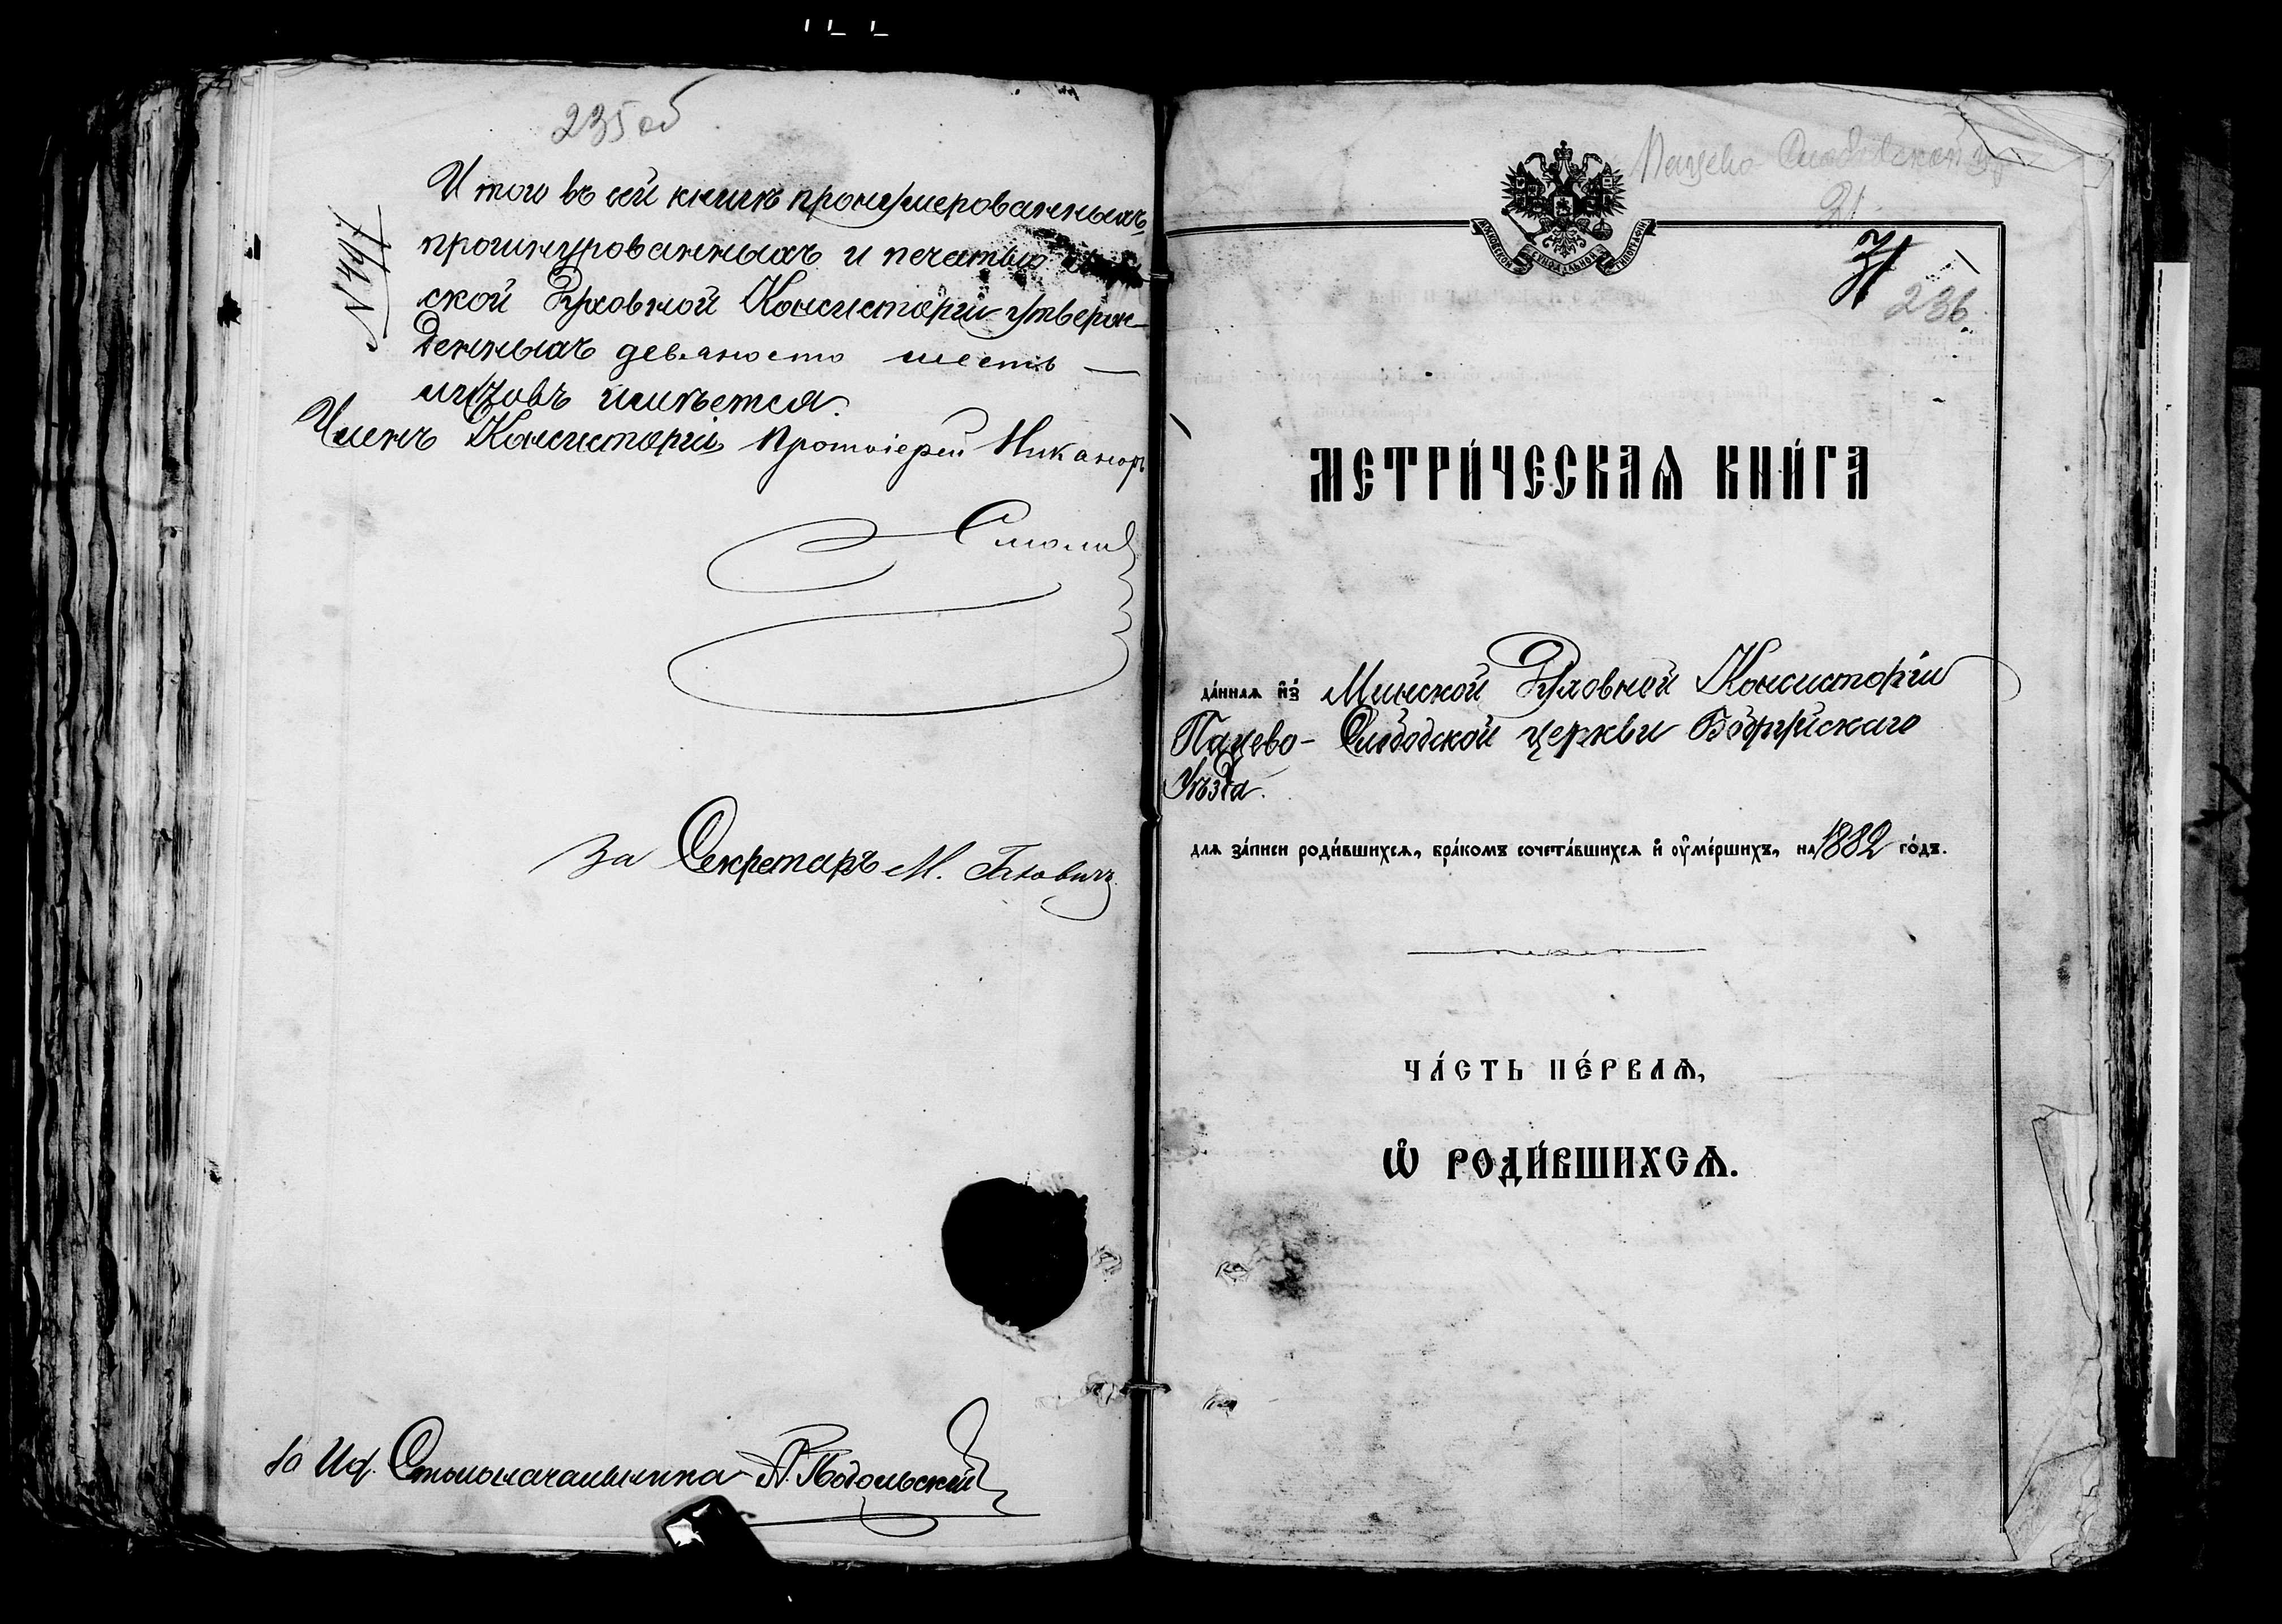 235 об
№ 497
И того въ сей книгѣ пронумерованныхъ,
прошнурованныхъ и печатью
ской Духовной Консисторіи утверж-
денныхъ девяносто шесть —
листовъ имѣется.
Членъ Консисторіи Протоіерей Никаноръ
Смолич
За Секретаръ М.
Иср. Столоначальника А. Подольскій
Пацево-Слободской
31
31
236
МОСКОВСКОЙ СѴНОДАЛЬНОЙ ТИПОГРАФІИ
МЕТРИ́ЧЕСКАѦ КНИ́ГА
да́ннаѧ и҆з̾ Минской Духовной Консисторіи
Пацево-Слободской церкви Бобруйскаго
Уѣзда.
длѧ за́писи роди́вшихсѧ, бра́комъ сочета́вшихсѧ и҆ ᲂу҆ме́ршихъ, на 1882 го́дъ.
ЧА́СТЬ ПЕ́РВАѦ,
Ѽ РОДИ́ВШИХСѦ.